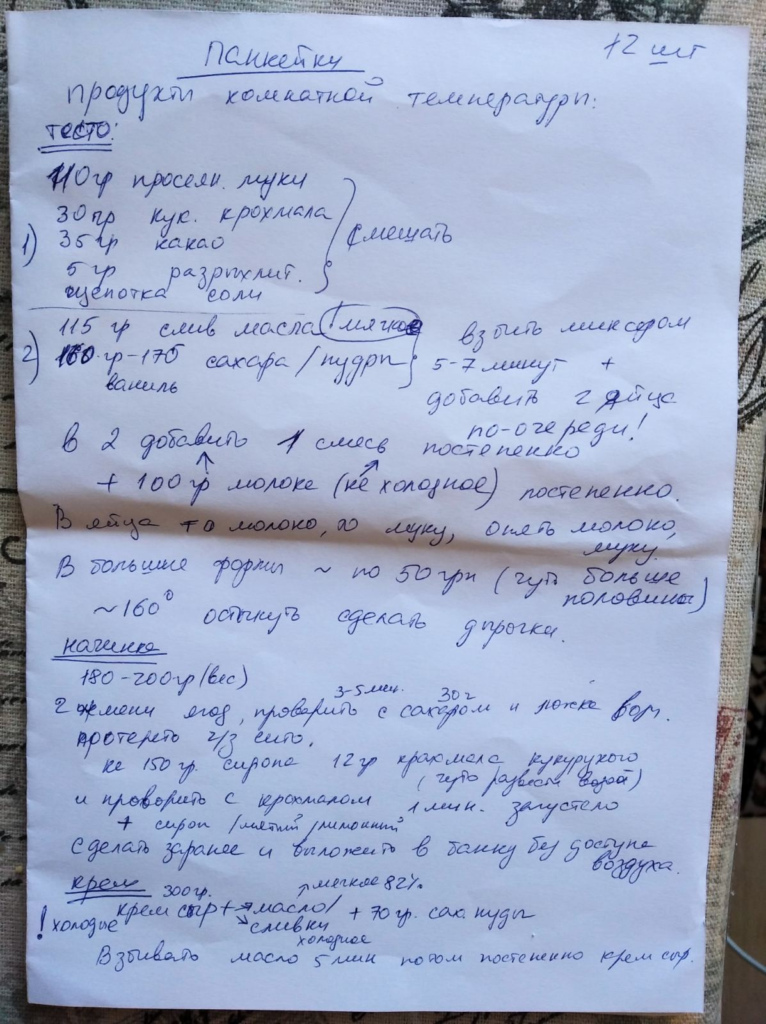 Панкейки 12 шт
Продукты комнатной температуры:
тесто:
110гр просеян. муки
30гр кук. крохмала
1) 35гр какао } Смешать
5гр разрыхлит.
щепотка соли
115 гр слив масла! мягкое взбить миксером
2) 160 гр-175 сахара / пудры 5-7 минут +
ваниль добавить 2 яйца
по-очереди!
В 2 добавить 1 смесь постепенно
+ 100гр молока (не холодное) постепенно.
В яйца то молоко, то муку, опять молоко,
муку.
В большие формы ~ по 50грн (чуть больше
половины)
~160° остынуть сделать дырочки.
начинка
180-200гр (вес)
3-5 мин. 30г
2 жмени ягод, проварить с сахаром и ложка вог.
протереть ч/з сито.
на 150гр. сиропа 12гр крахмала кукурузного
(чуть развести водой)
и проварить с крохмалом 1 мин. загустело
+ сироп /мятный /лимонный
Сделать заранее и выложить в банку без доступа
воздуха.
крем 300гр. мягкое 82%
! холодные крем сыр + масло/ + 70гр. сах пуды
сливки
холодное
Взбивать масло 5 мин потом постепенно крем сыр.